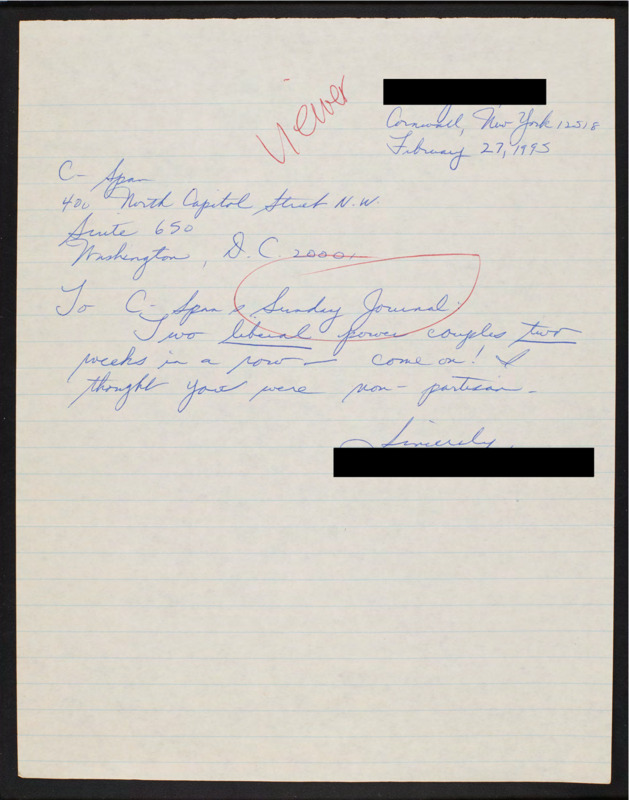 viewer
Cornwall, New York 12518
February 27, 1995
C-Span
400 North Capitol Street N.W.
Suite 650
Washington, D.C. 20001
To C-Span's Sunday Journal.
Two liberal power couples two
weeks in a row — come on! I
thought you were non-partisan.
Sincerely,